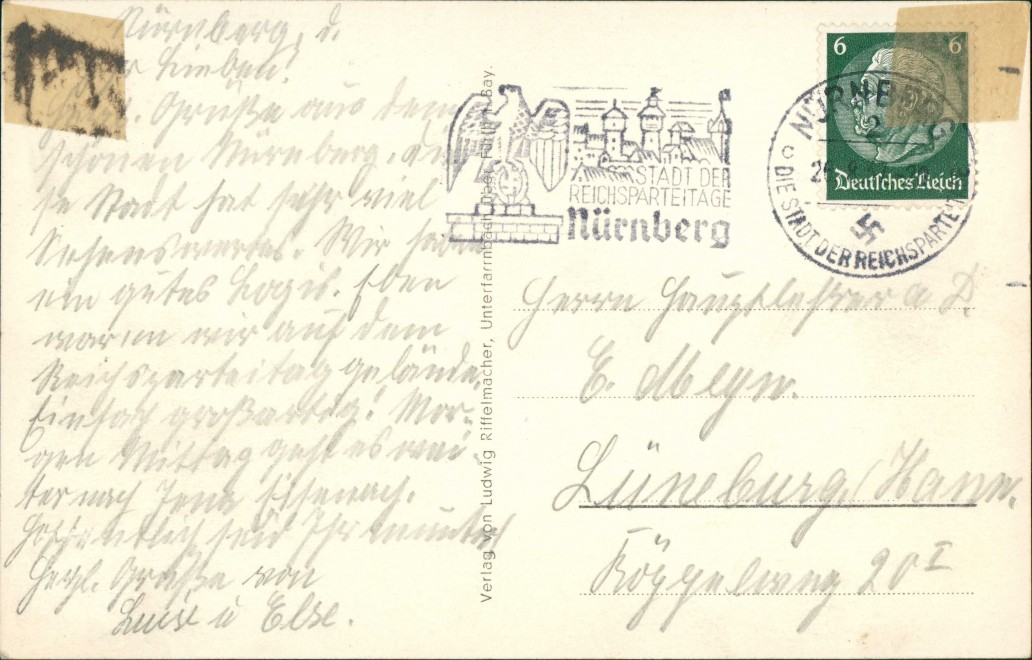 Nürnberg, d.
Ihr Lieben!
Herzl. Grüße aus dem
schönen Nürnberg, die
se Stadt hat sehr viel
Sehenswertes. Wir haben
ein gutes Logis. Eben
waren wir auf dem
Reichsparteitaggelände.
Einfach großartig! Mor-
gen Mittag geht es wei-
ter nach Jena Eisenach.
Hoffentlich seid Ihr munter
Herzl. Grüße von
u Else.
Verlag von Ludwig Riffelmacher, Unterfarrnbach
Bay.
STADT DER
REICHSPARTEITAGE
Nürnberg
6 6
Deutsches Reich
NÜRNBERG
2
DIE STADT DER REICHSPARTEITAGE
Herrn Hauptlehrer a D.
E. Meyn.
Lüneburg/Hann.
Röppelweg 20 I